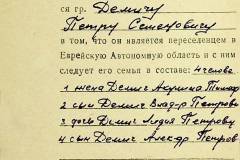 ся гр. Демичу
Петру Семеновичу
в том, что он является переселенцем в
Еврейскую Автономную область и с ним
следует его семья в составе: 4 человек
1 жена Демич Акулина
2 сын Демич Владир Петрович
3 дочь Демич Лидия Петровн
4 сын Демич Алексдр Петров